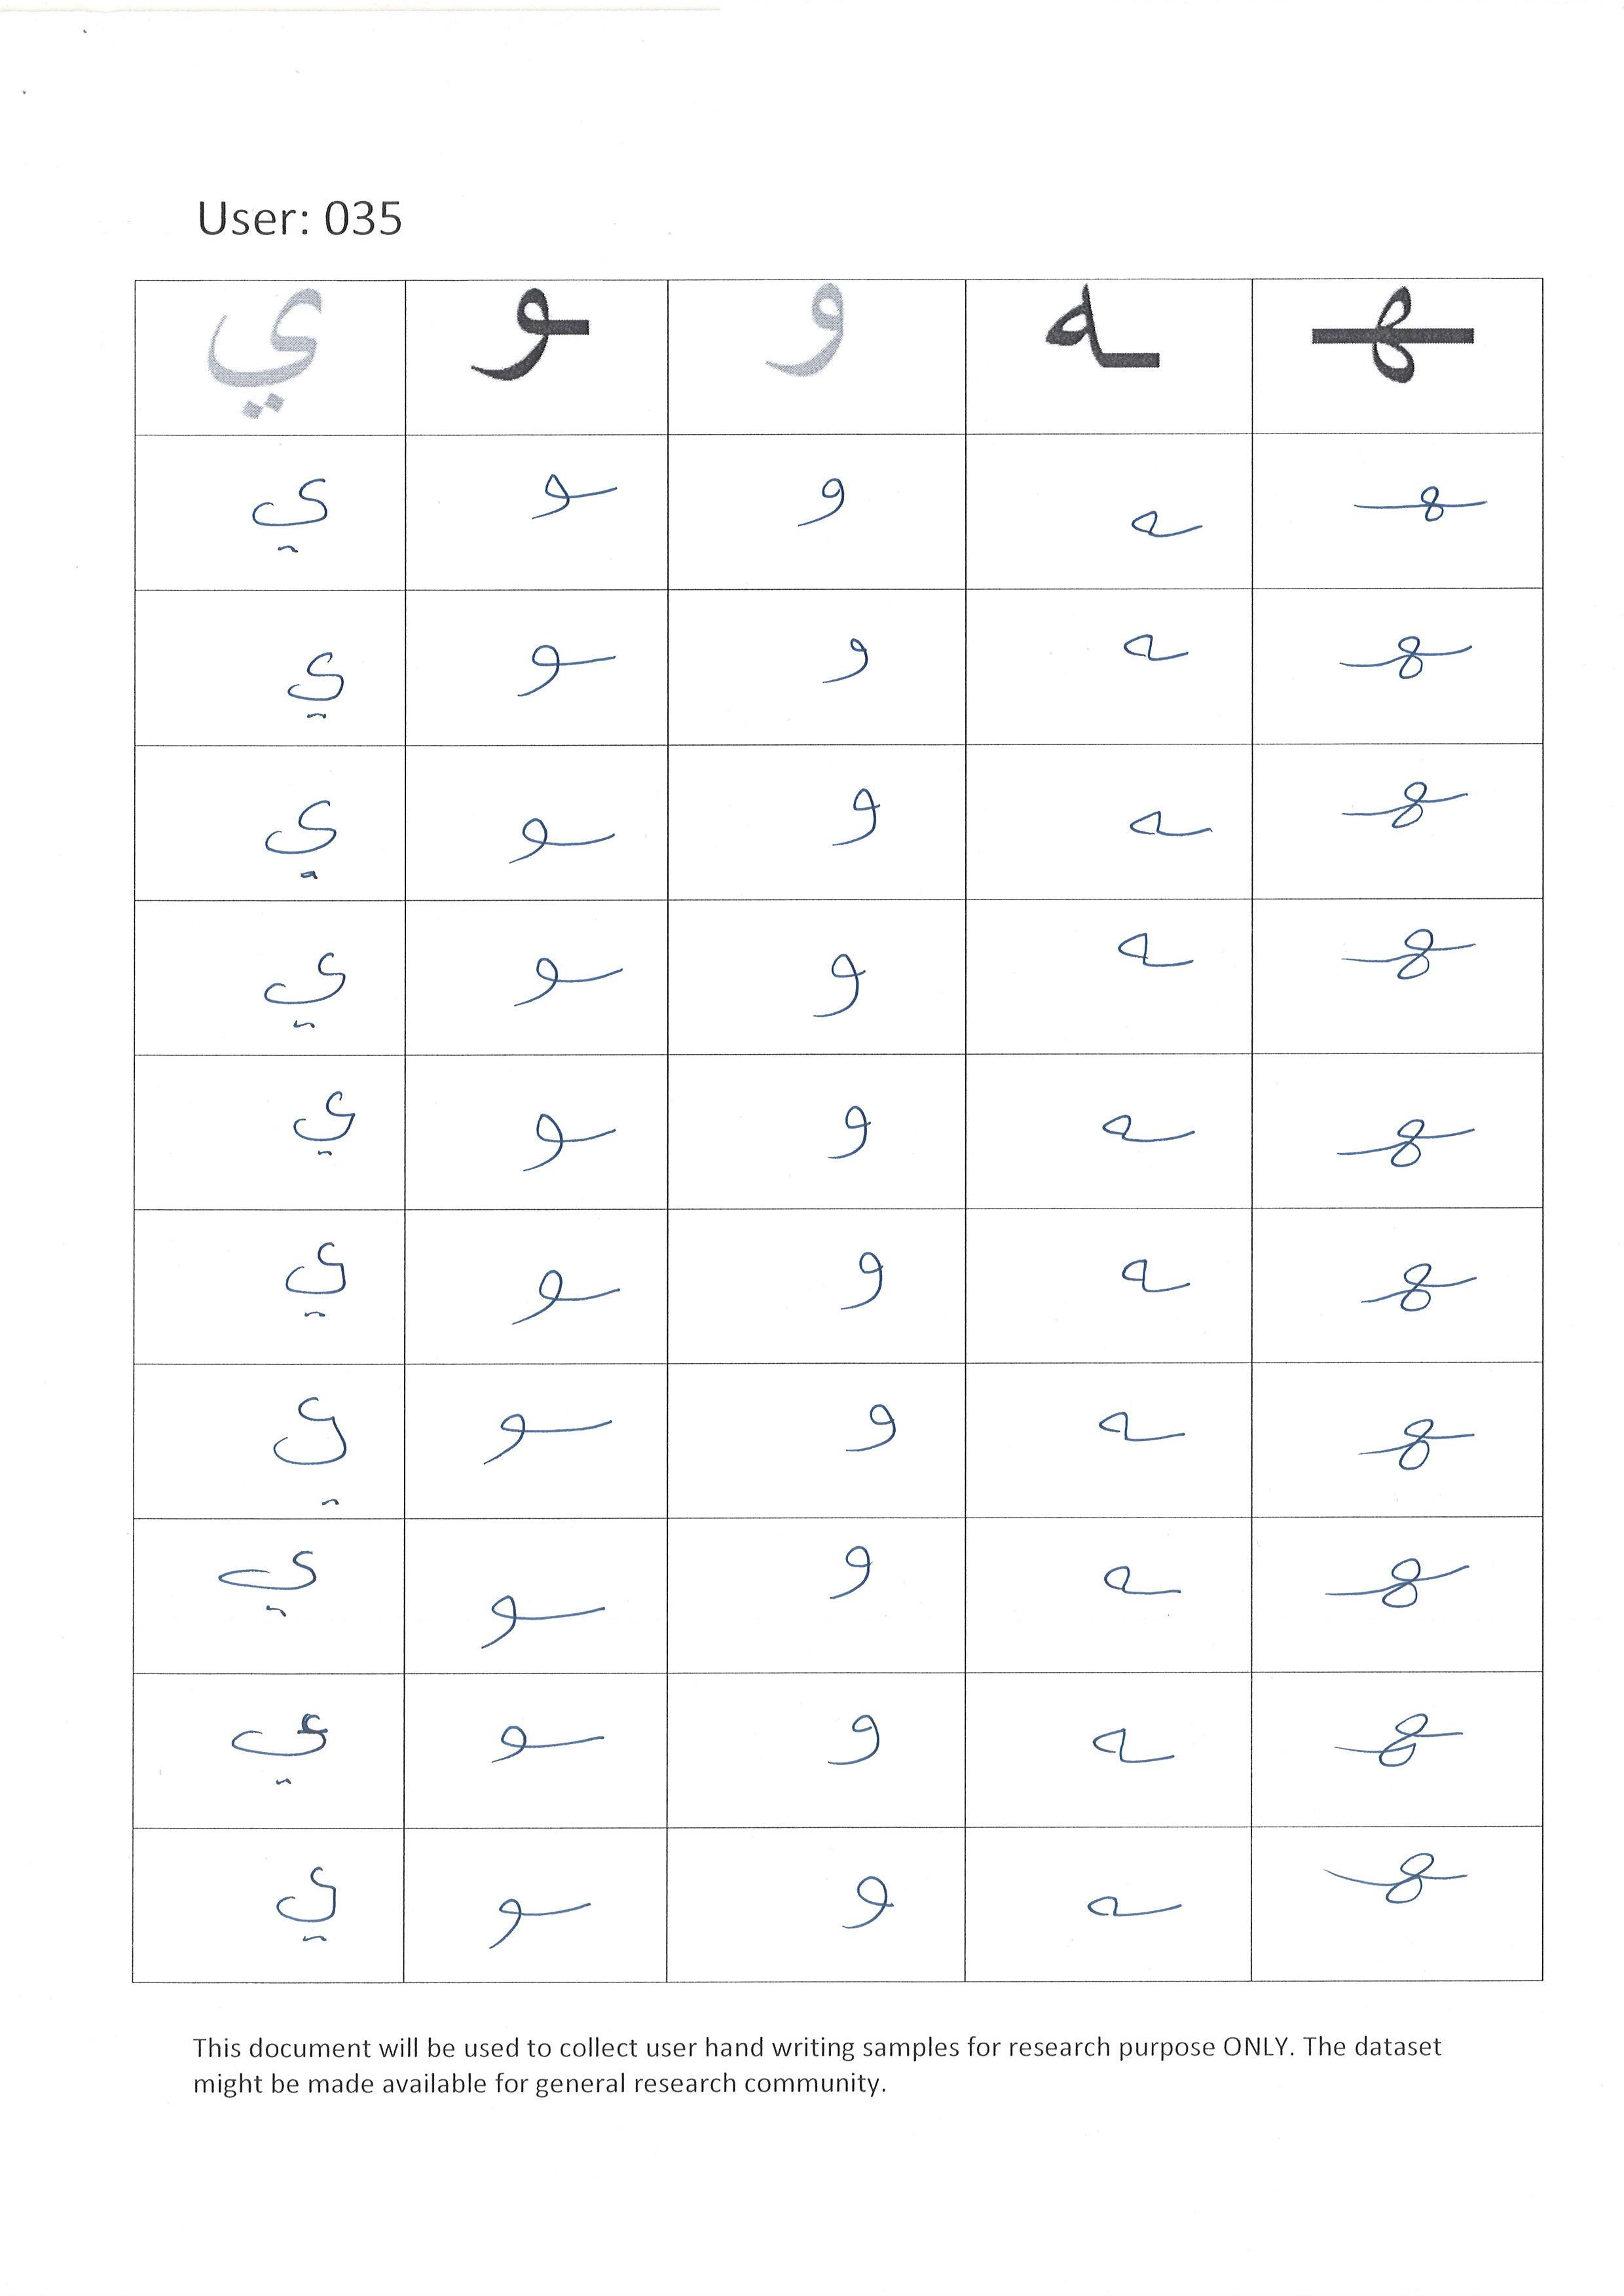 User: 035
ي ـو و ـه ـهـ
ي ـو و ـه ـهـ
ي ـو و ـه ـهـ
ي ـو و ـه ـهـ
ي ـو و ـه ـهـ
ي ـو و ـه ـهـ
ي ـو و ـه ـهـ
ي ـو و ـه ـهـ
ي ـو و ـه ـهـ
ي ـو و ـه ـهـ
ي ـو و ـه ـهـ
This document will be used to collect user hand writing samples for research purpose ONLY. The dataset
might be made available for general research community.